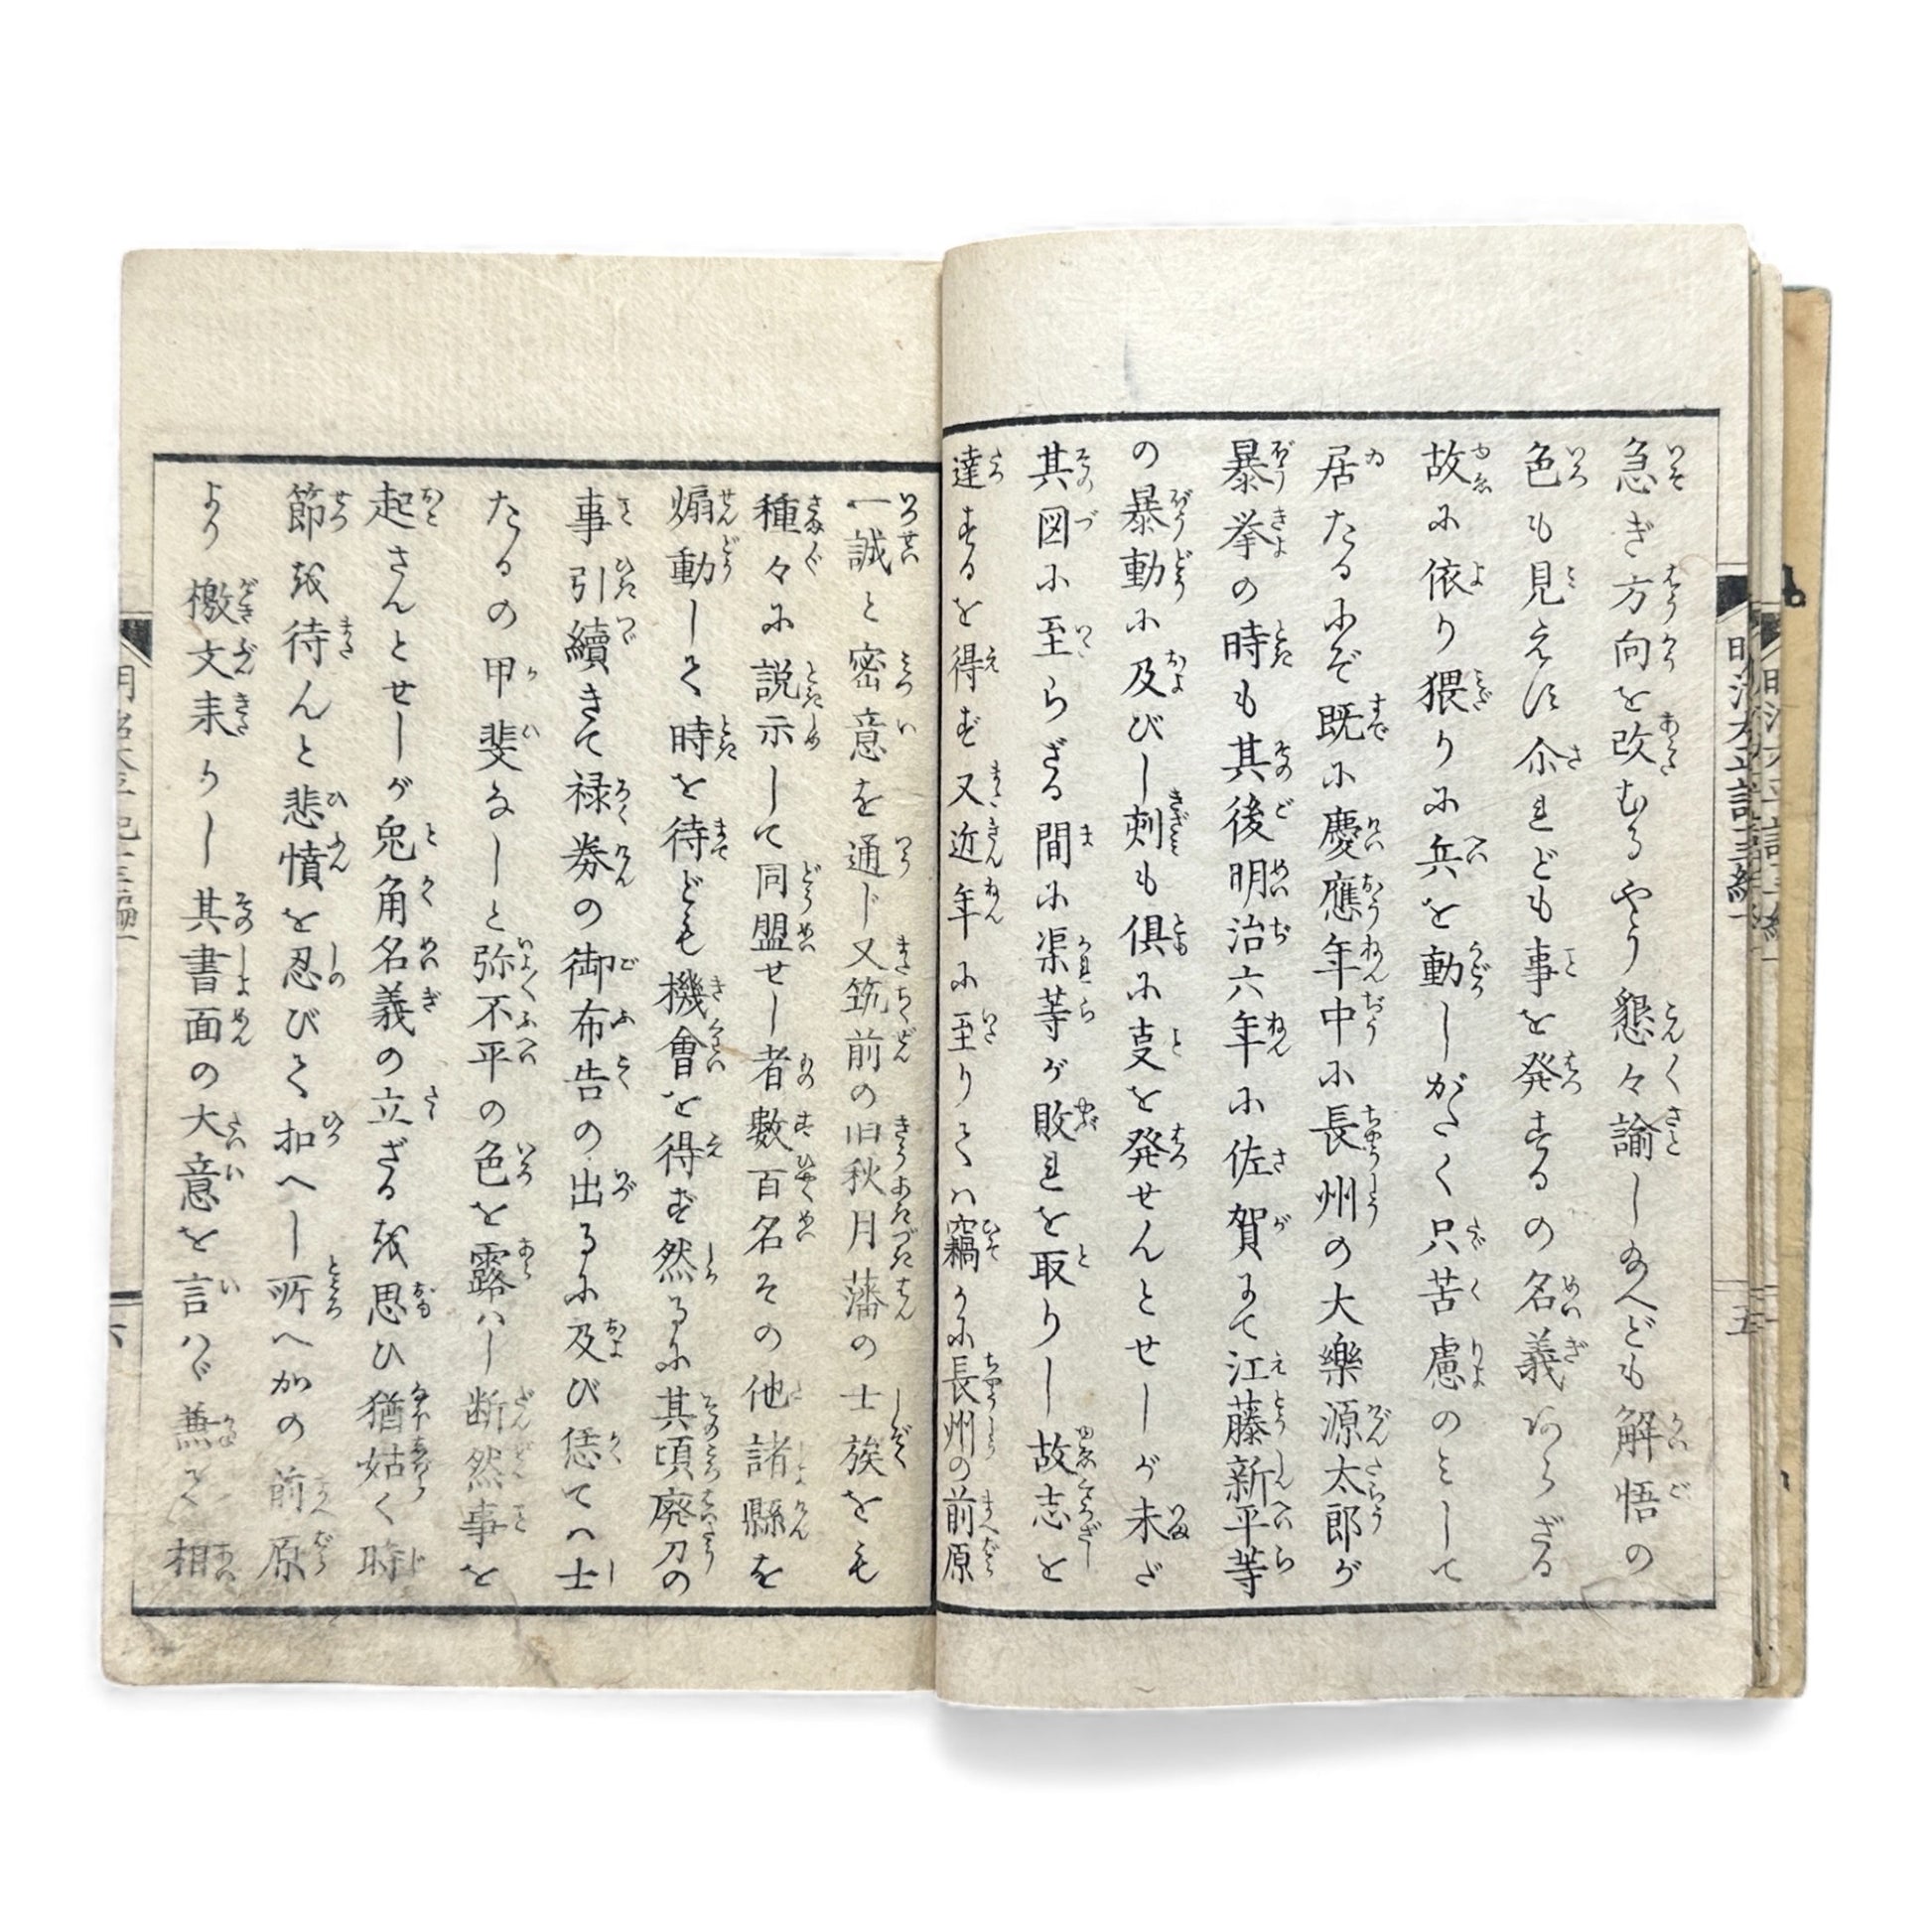 急ぎ方向を改むるやう懇々諭しぬへども解悟の
色も見えず尒れども事を発するの名義あらざる
故に依り猥りに兵を動しがたく只苦慮のミして
居たるにぞ既に慶應年中に長州の大樂源太郎が
暴挙の時も其後明治六年に佐賀にて江藤新平等
の暴動に及びし刺も倶に支を発せんとせしが未ざ
其図に至らざる間に渠等が敗れを取りし故志を
達するを得ず又近年に至りてハ竊かに長州の前原
一誠と密意を通じ又筑前の旧秋月藩の士族をも
種々に説示して同盟せし者數百名その他諸縣を
煽動して時を待ども機會を得ず然るに其頃廃刀の
事引續きて禄券の御布告の出るに及び恁てハ士
たるの甲斐なしと弥不平の色を露ハし断然事を
起さんとせしが兎角名義の立ざるを思ひ猶姑く時
節を待んと悲憤を忍びて扣へし所へかの前原
より檄文来りし其書面の大意を言ハゞ兼て相
明治太平記十三編一
五
六